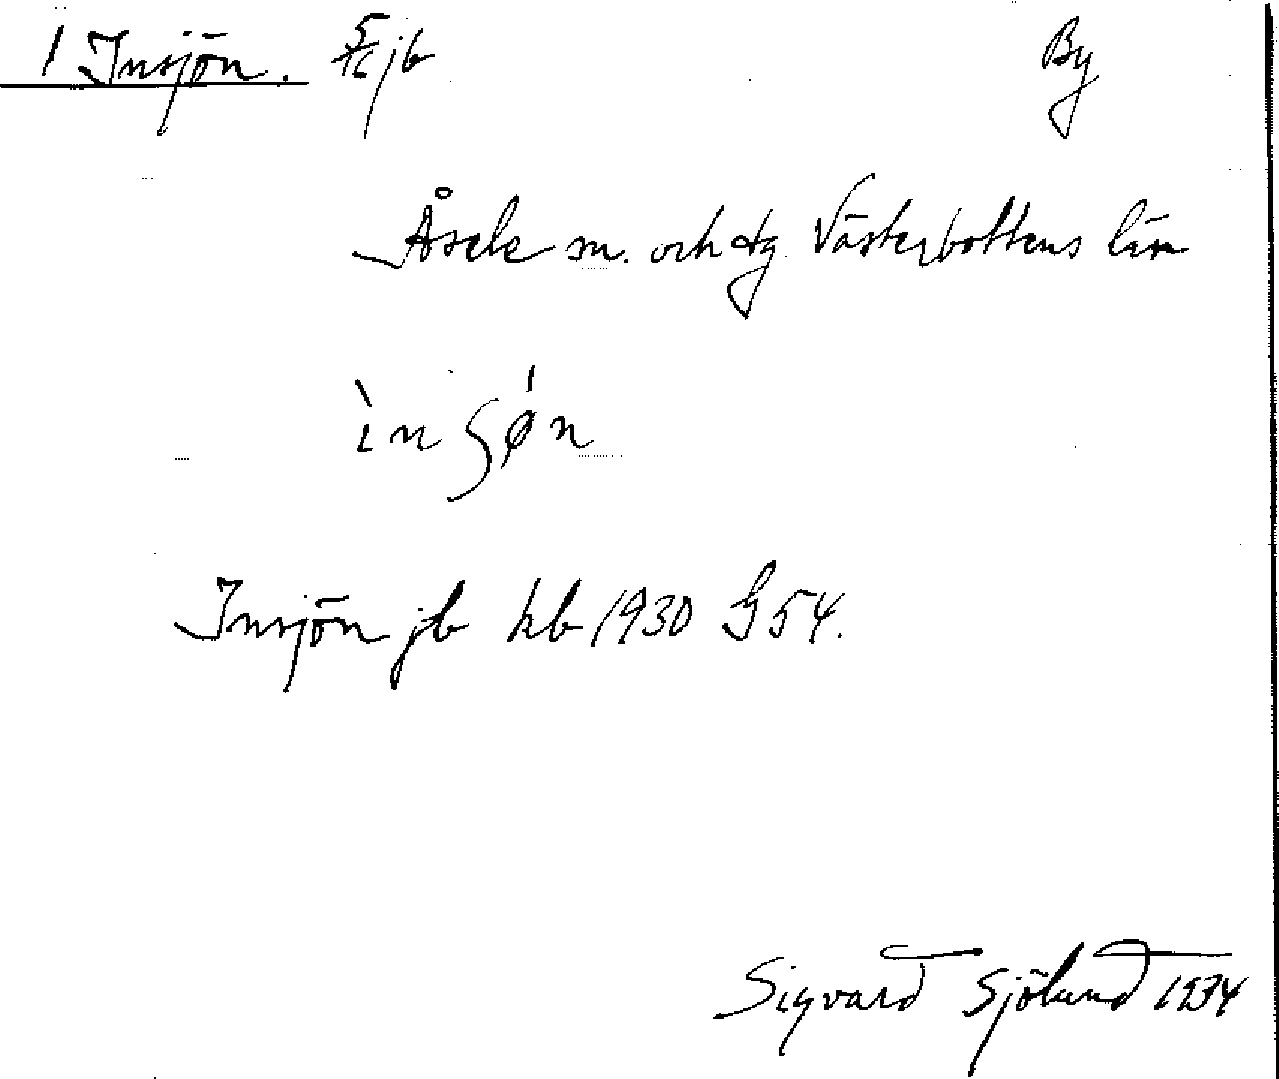 1 Insjön. 5/16 jb By
Åsele sn. och tg. Västerbottens län
ìn ʃǿn
Insjön jb kb 1930 G 54.
Sigvard Sjölund 1934